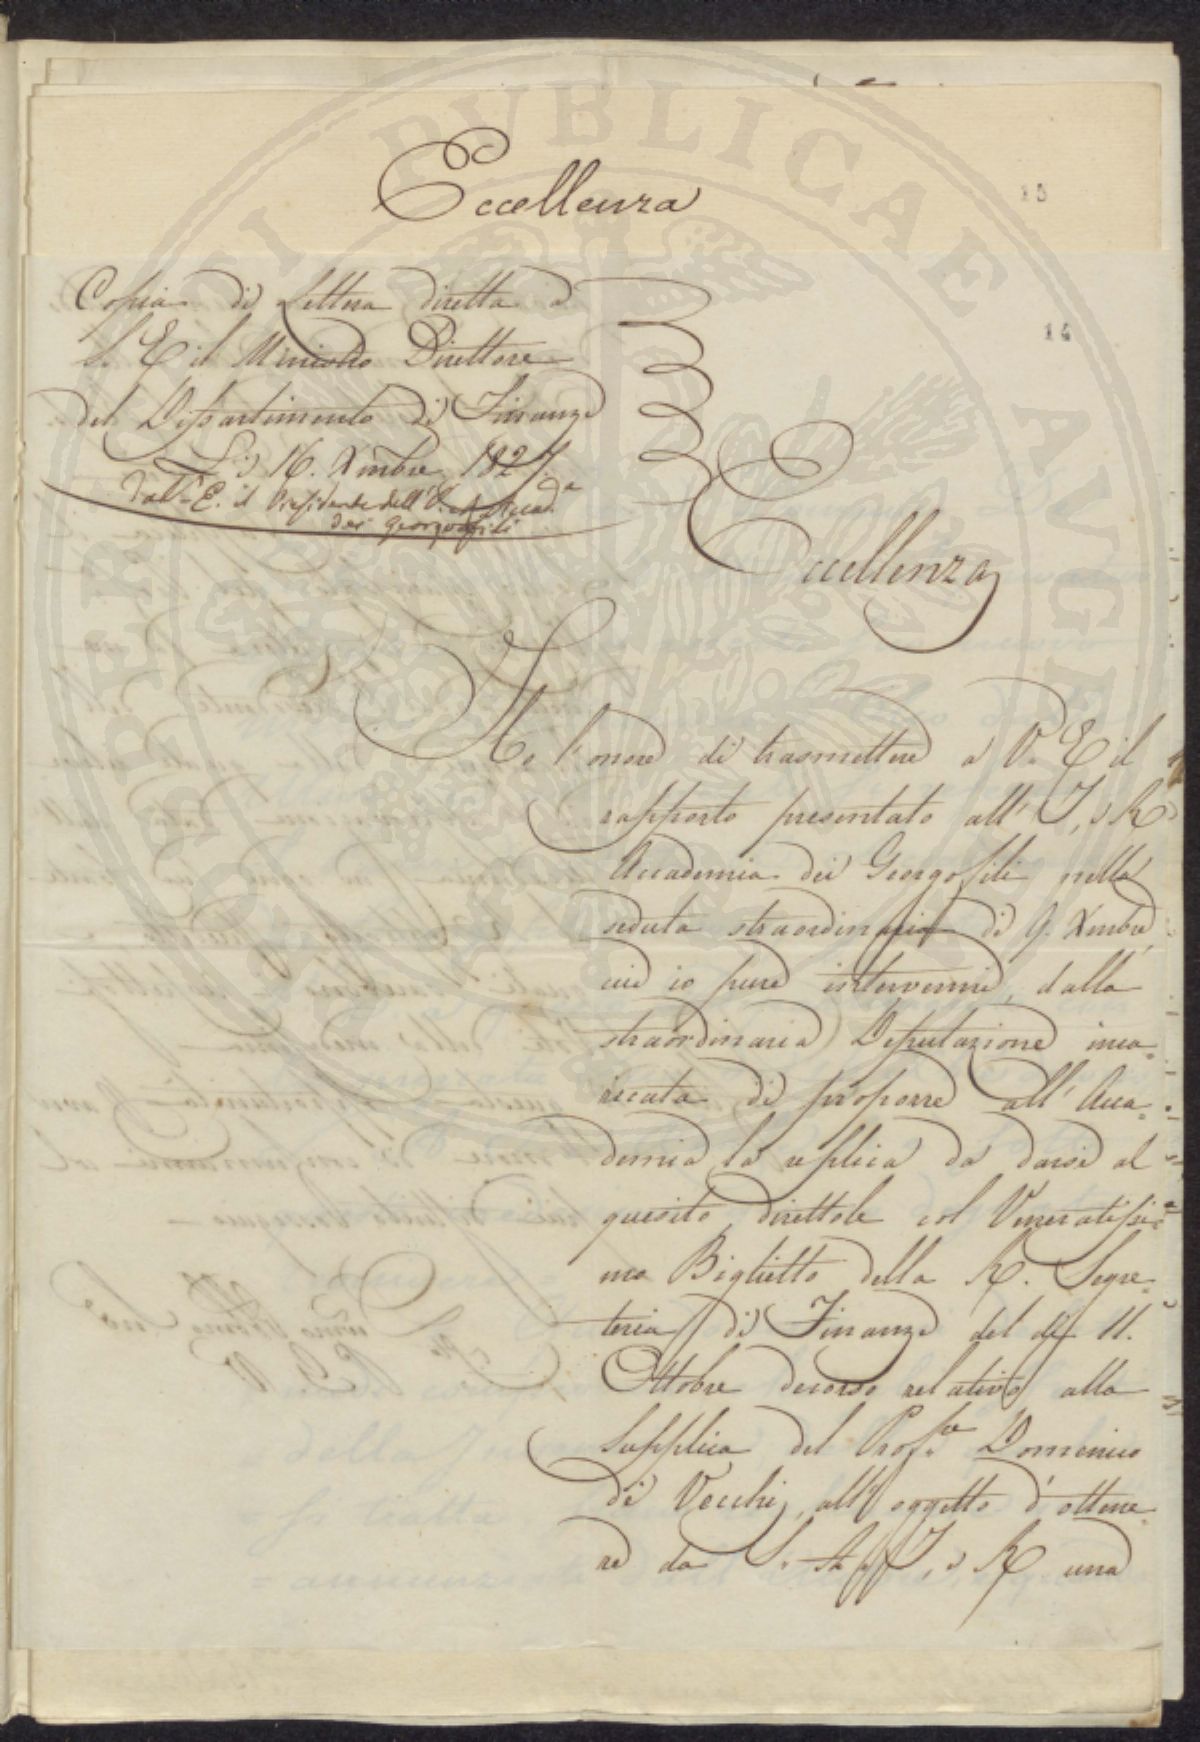 Eccellenza
15
Copia di Lettera diretta a
S. E. il Ministro Direttore
del Dipartimento di Finanze
Li 16. Xmbre 1827.
dal S. E. il Presidente dell' Accad.a
dei Georgofili
14
Eccellenza
Ho l'onore di trasmettere a V. E. il
rapporto presentato all' I. e R.
Accademia dei Georgofili nella
seduta straordinaria di 9. Xmbre,
cui io pure intervenni, dalla
straordinaria Deputazione inca=
ricata di proporre all' Acca=
demia la replica da darsi al
quesito direttole col Veneratissi=
mo Biglietto della R. Segre=
teria di Finanze del dì 11.
Ottobre decorso relativo alla
Supplica del Prof.re Domenico
de Vecchj, all' oggetto d'ottene=
re da S. A. I. e R. una
PUBLICAE AVGE